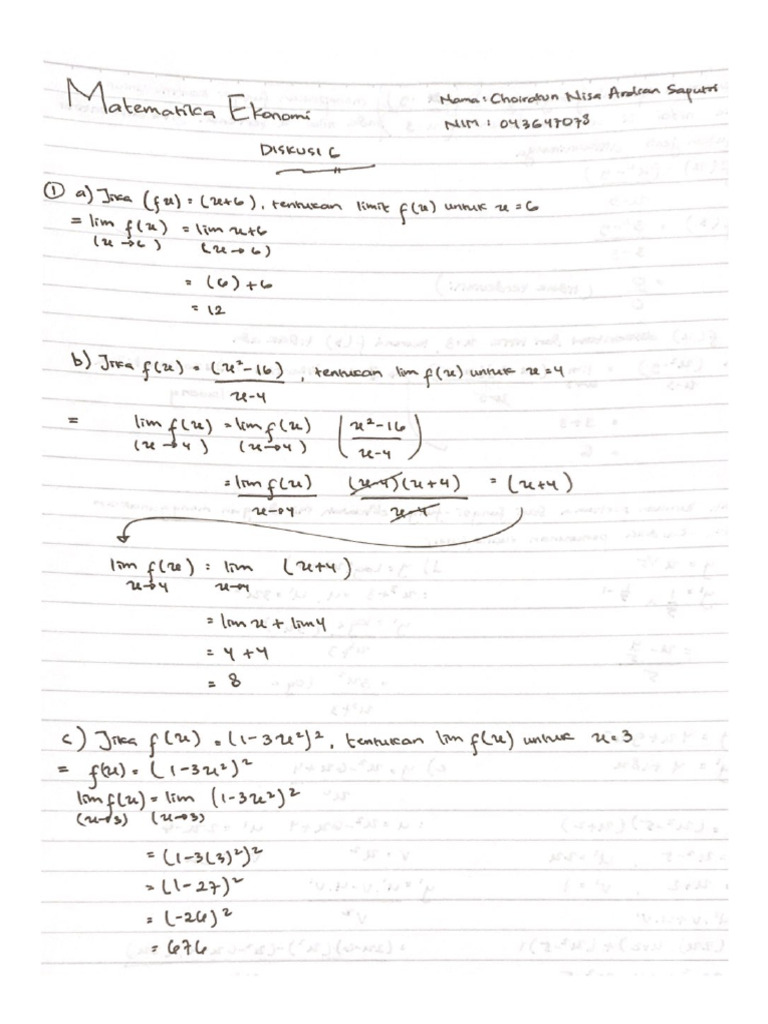 Matematika Ekonomi
Nama : Choirotun Nisa Ardian Saputri
NIM : 043647078
DISKUSI 6
① a) Jika (fx) = (x+6), tentukan limit f(x) untuk x = 6
= lim f(x) = lim x+6
(x → 6) (x → 6)
= (6) + 6
= 12
b) Jika f(x) = (x²-16) / x-4 , tentukan lim f(x) untuk x = 4
= lim f(x) = lim f(x) (x²-16 / x-4)
(x → 4) (x → 4)
= lim f(x) / x→4 (x-4)(x+4) / x-4 = (x+4)
lim f(x) = lim (x+4)
x→4 x→4
= lim x + lim 4
= 4 + 4
= 8
c) Jika f(x) = (1-3x²)², tentukan lim f(x) untuk x = 3
= f(x) = (1-3x²)²
lim f(x) = lim (1-3x²)²
(x→3) (x→3)
= (1-3(3)²)²
= (1-27)²
= (-26)²
= 676